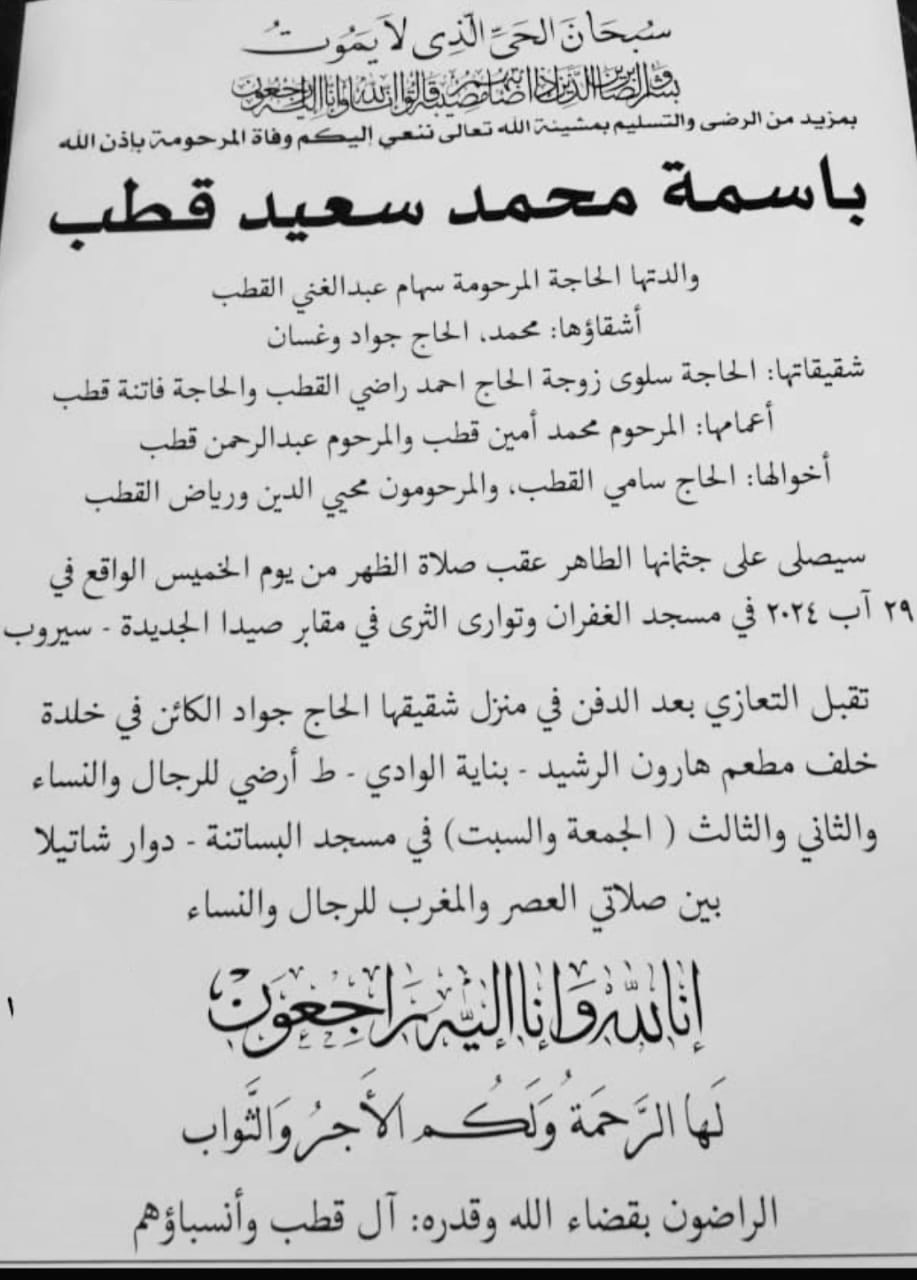 سُبْحَانَ الحَيِّ الَّذِي لَا يَمُوتُ
وبشر الصابرين الذين إذا أصابتهم مصيبة قالوا إنا لله وإنا إليه راجعون
بمزيد من الرضى والتسليم بمشيئة الله تعالى ننعي إليكم وفاة المرحومة بإذن الله
باسمة محمد سعيد قطب
والدتها الحاجة المرحومة سهام عبدالغني القطب
أشقاؤها: محمد، الحاج جواد وغسان
شقيقاتها: الحاجة سلوى زوجة الحاج احمد راضي القطب والحاجة فاتنة قطب
أعمامها: المرحوم محمد أمين قطب والمرحوم عبدالرحمن قطب
أخوالها: الحاج سامي القطب، والمرحومون محيي الدين ورياض القطب
سيصلى على جثمانها الطاهر عقب صلاة الظهر من يوم الخميس الواقع في
٢٩ آب ٢٠٢٤ في مسجد الغفران وتوارى الثرى في مقابر صيدا الجديدة - سيروب
تقبل التعازي بعد الدفن في منزل شقيقها الحاج جواد الكائن في خلدة
خلف مطعم هارون الرشيد - بناية الوادي - ط أرضي للرجال والنساء
والثاني والثالث ( الجمعة والسبت) في مسجد البساتنة - دوار شاتيلا
بين صلاتي العصر والمغرب للرجال والنساء
إنا لله وإنا إليه راجعون
١
لَها الرَّحمَةُ وَلَكُم الأَجرُ وَالثَّواب
الراضون بقضاء الله وقدره: آل قطب وأنسباؤهم